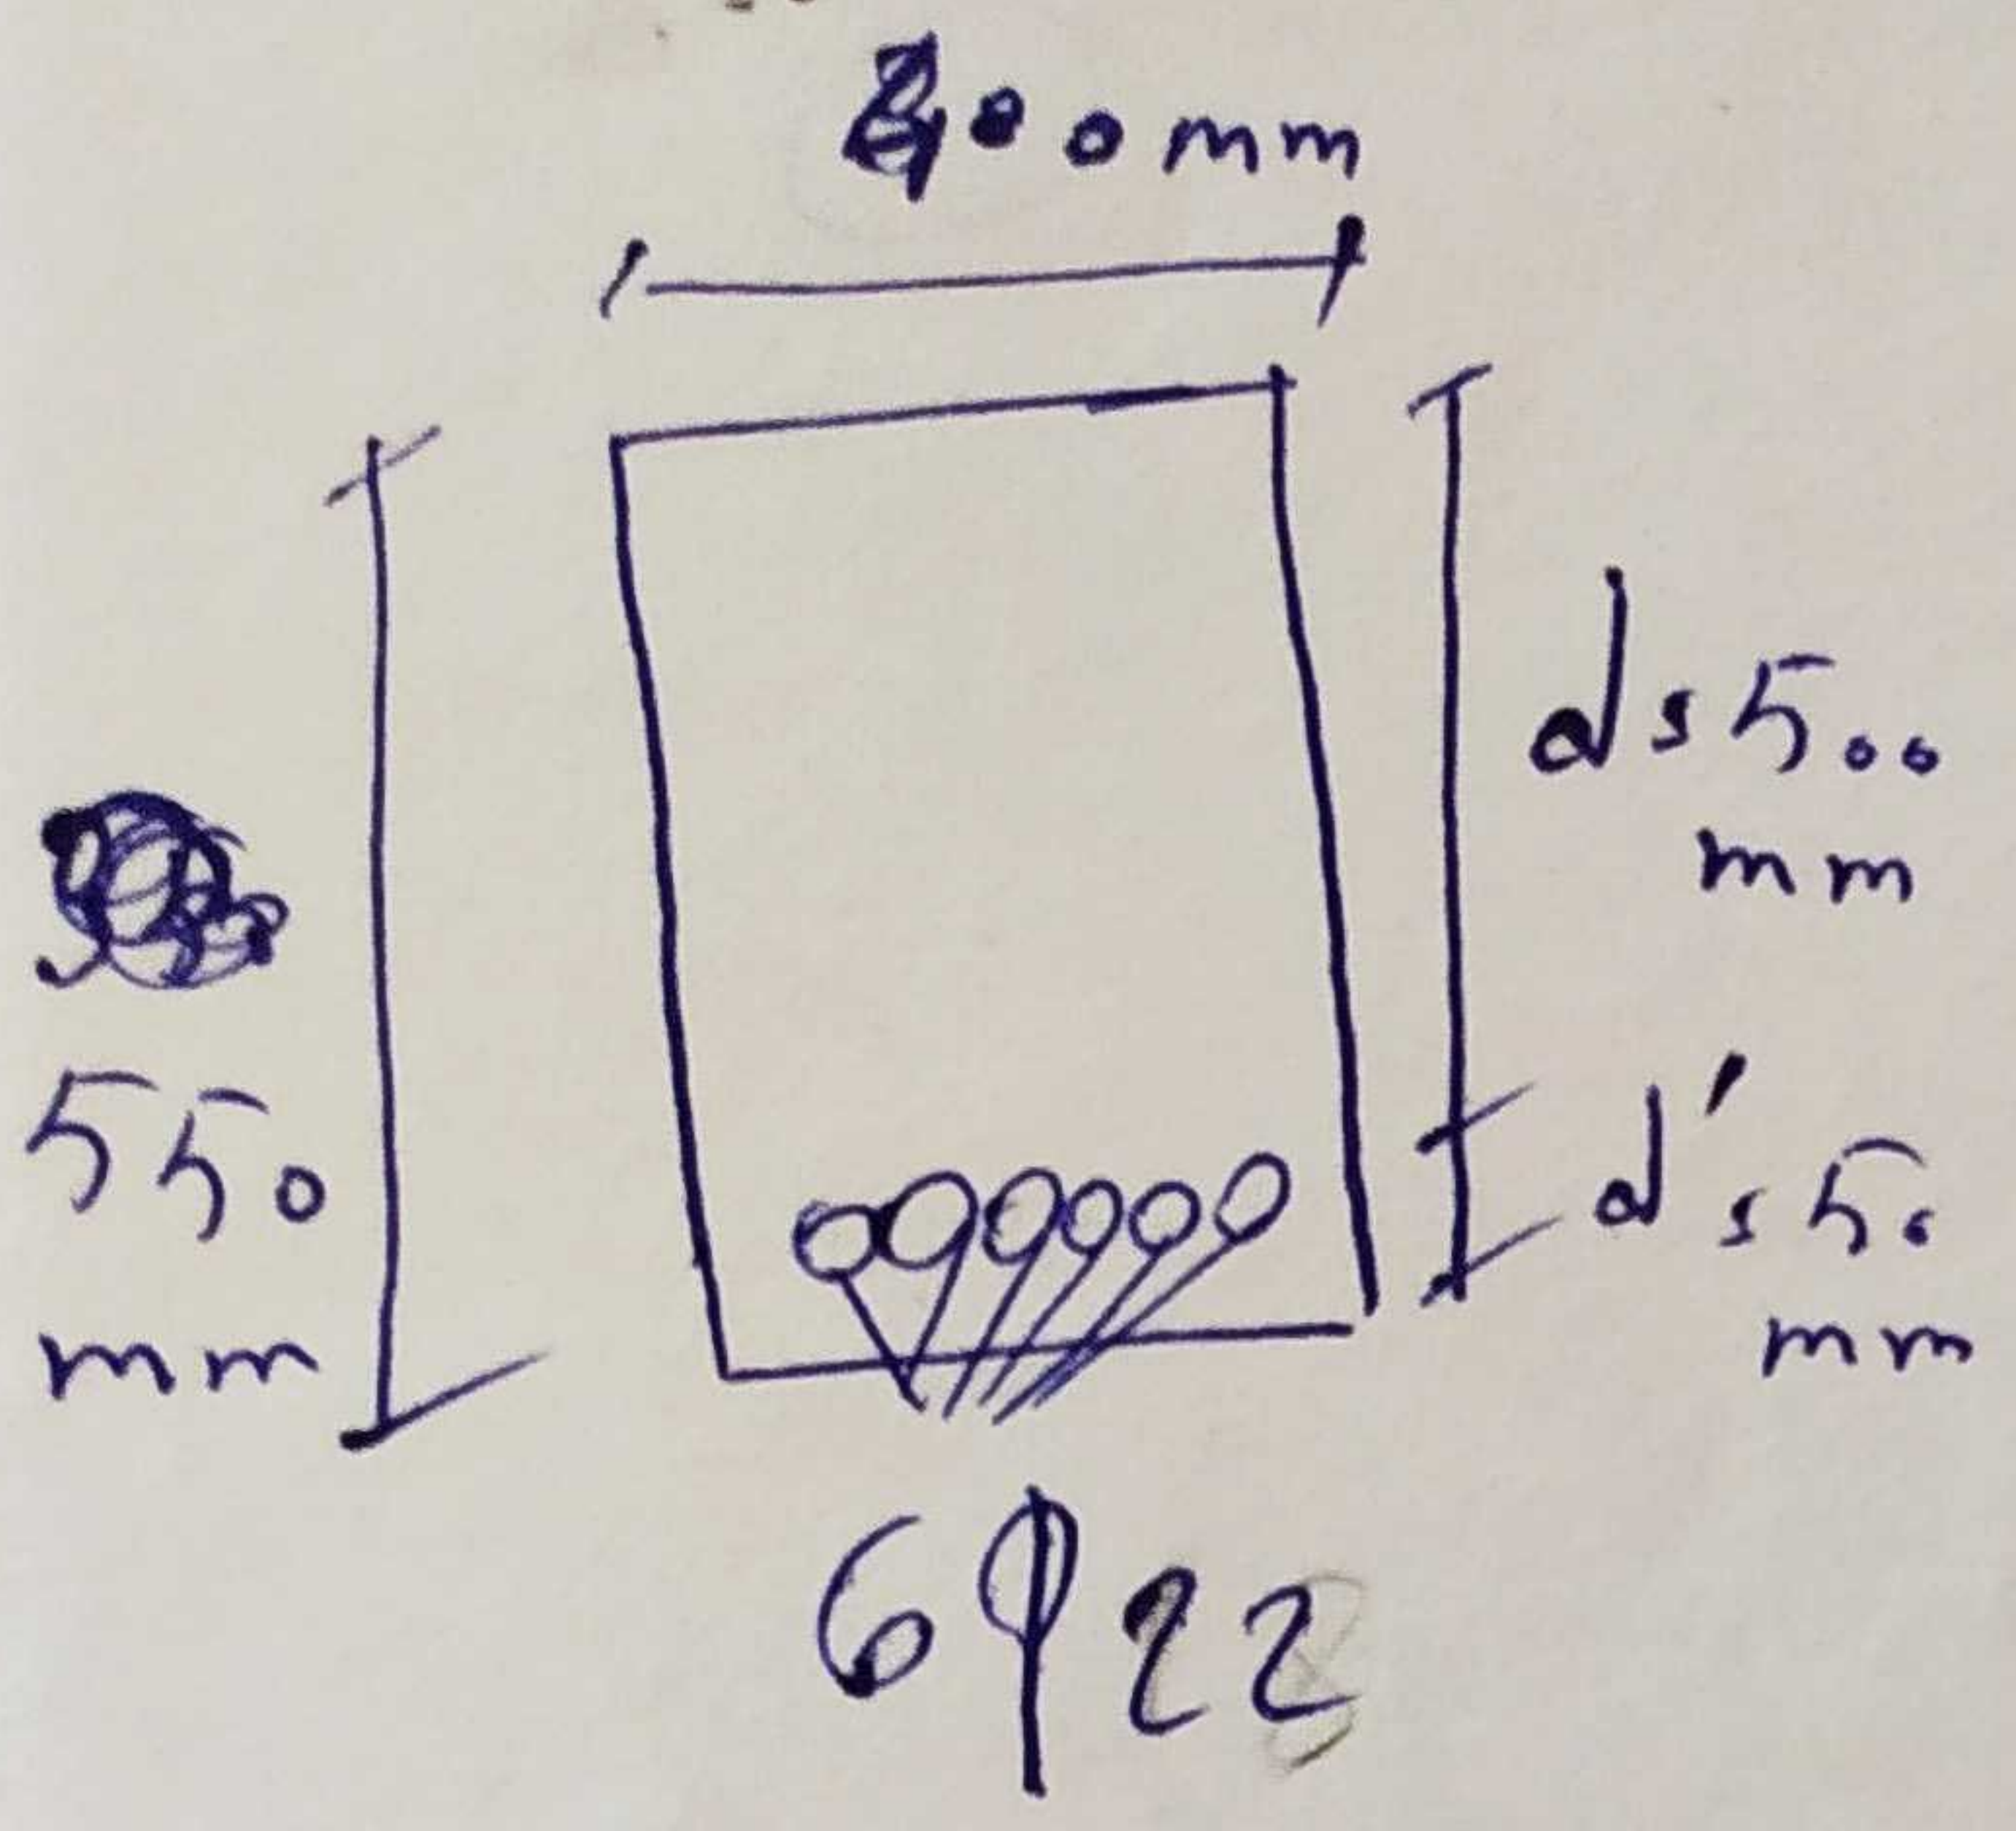 400mm
d = 500
mm
550
mm
d' = 50
mm
6φ22